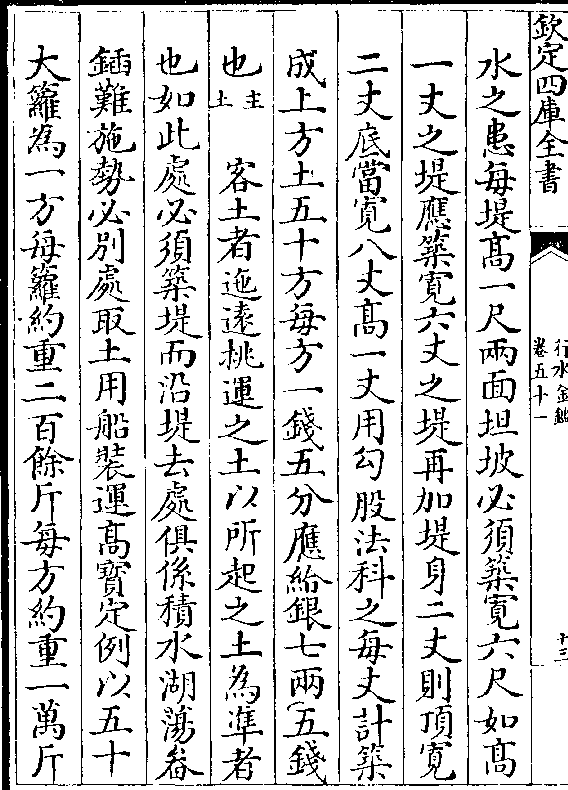 欽定四庫全書
行水金鑑
卷五十一
十三
水之患每堤髙一尺兩面坦坡必須築寛六尺如髙
一丈之堤應築寛六丈之堤再加堤身二丈則頂寛
二丈底當寛八丈髙一丈用勾股法科之每丈計築
成上方土五十方每方一錢五分應給銀七兩五錢
也主土　客土者迤逺桃運之土以所起之土為凖者
也如此處必須築堤而沿堤去處俱係積水湖蕩畚
鍤難施勢必别處取土用船裝運髙寳定例以五十
大籮為一方每籮約重二百餘斤每方約重一萬斤